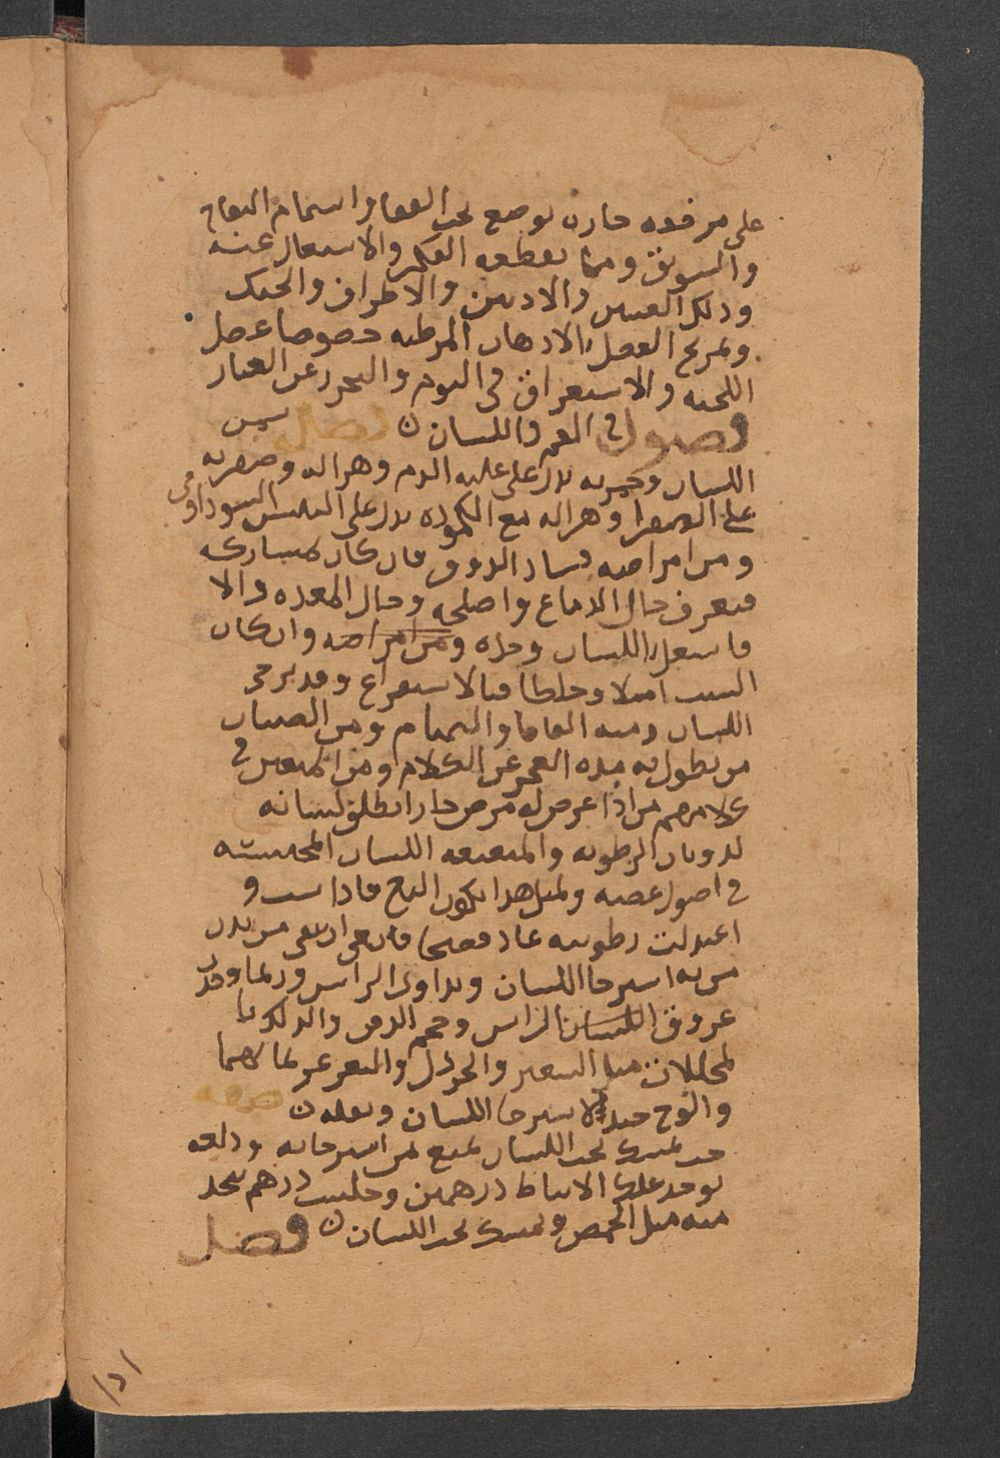 على مرفقه حاره توضع تحت القفا واشمام التفاح
والسويق ومما يقطعه الفكر والاشتغال عنه
ودلك العينين والاذنين والاطراف والحنك
وتمريخ العضل بالادهان المرطبه خصوصا عضل
اللحيه والاستغراق في النوم والتحرز عن الغبار
فصول في الفم واللسان فصل
اللسان وحمرته يدل على غلبه الدم وهزاله وصفرته
على الصفرا وهزاله مع الكموده يدل على اليبس السوداوى
ومن امراضه فساد الذوق فان كان بمشاركه
فتعرف حال الدماغ واصلحه وحال المعده والا
فاشتغل باللسان وحده ومن امراضه وان كان
السبب امتلا وخلطا فبالاستفراغ وقد يرخى
اللسان ومنه الفافا والتمتام ومن الصبيان
من تطول به مده العجز عن الكلام ومن المتعتعين في
كلامهم من اذا عرض له مرض حار انطلق لسانه
لذوبان الرطوبه والمتعتعه اللسان المحتبسه
في اصول عصبه ولمثل هذا يكون الثغ فاذا شب و
اعتدلت رطوبته عاد فصيحا فان بقى استفرغ من بدن
من به استرخا اللسان ويداوى الراس وربما وجد
عروق اللسان الراس وحجم الذقن والدلك با
لمحللات مثل السعتر والخردل والتغرغر بمائهما
والوج جيد لاسترخا اللسان وثقله صفه
حب يمسك تحت اللسان يمنع من استرخائه ودلعه
يوخذ علك الانباط درهمين وحلتيت درهم يتخذ
منه مثل الحمص ويمسك تحت اللسان فصل